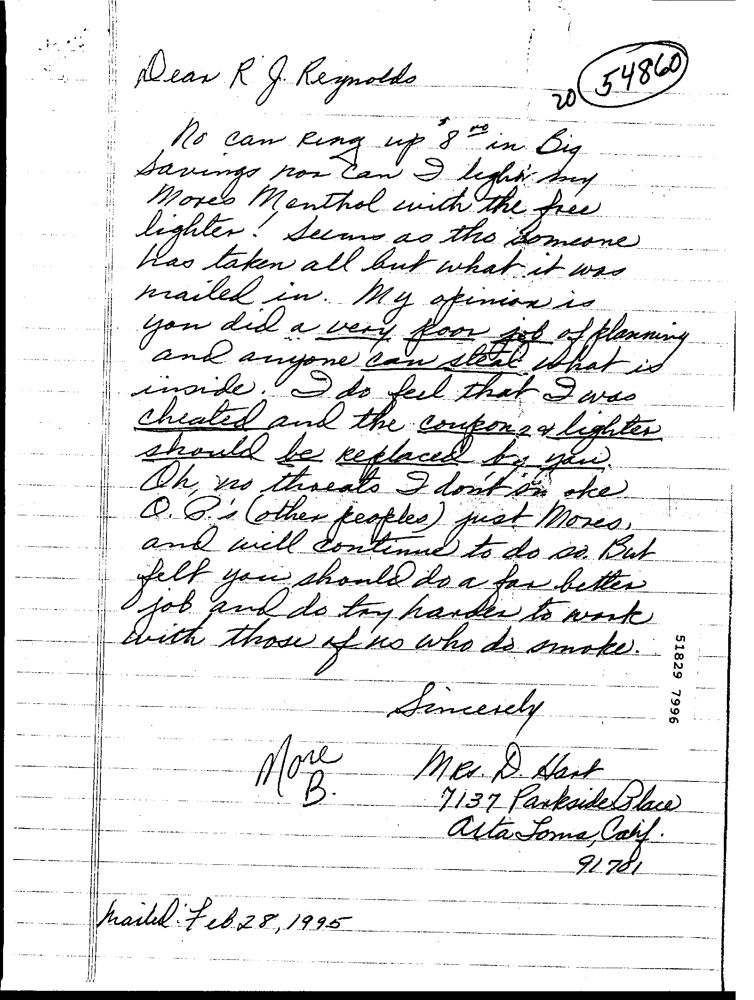 Dear R J. Reynolds
20 54860
No can ring up $8.00 in Big
Savings nor can I light my
Mores Menthol with the free
lighter! Seems as tho someone
has taken all but what it was
mailed in. My opinion is
you did a very poor job of planning
and anyone can steal what is
inside. I do feel that I was
cheated and the coupons & lighter
should be replaced by you.
Oh, no threats I don't smoke
O.P.'s (other peoples) just Mores,
and will continue to do so. But
felt you should do a far better
job and do try harder to work
with those of us who do smoke.
Sincerely
More
B.
Mrs. D. Hart
7137 Parkside Place
Alta Loma, Calif.
91701
Mailed: Feb 28, 1995
51829 7996